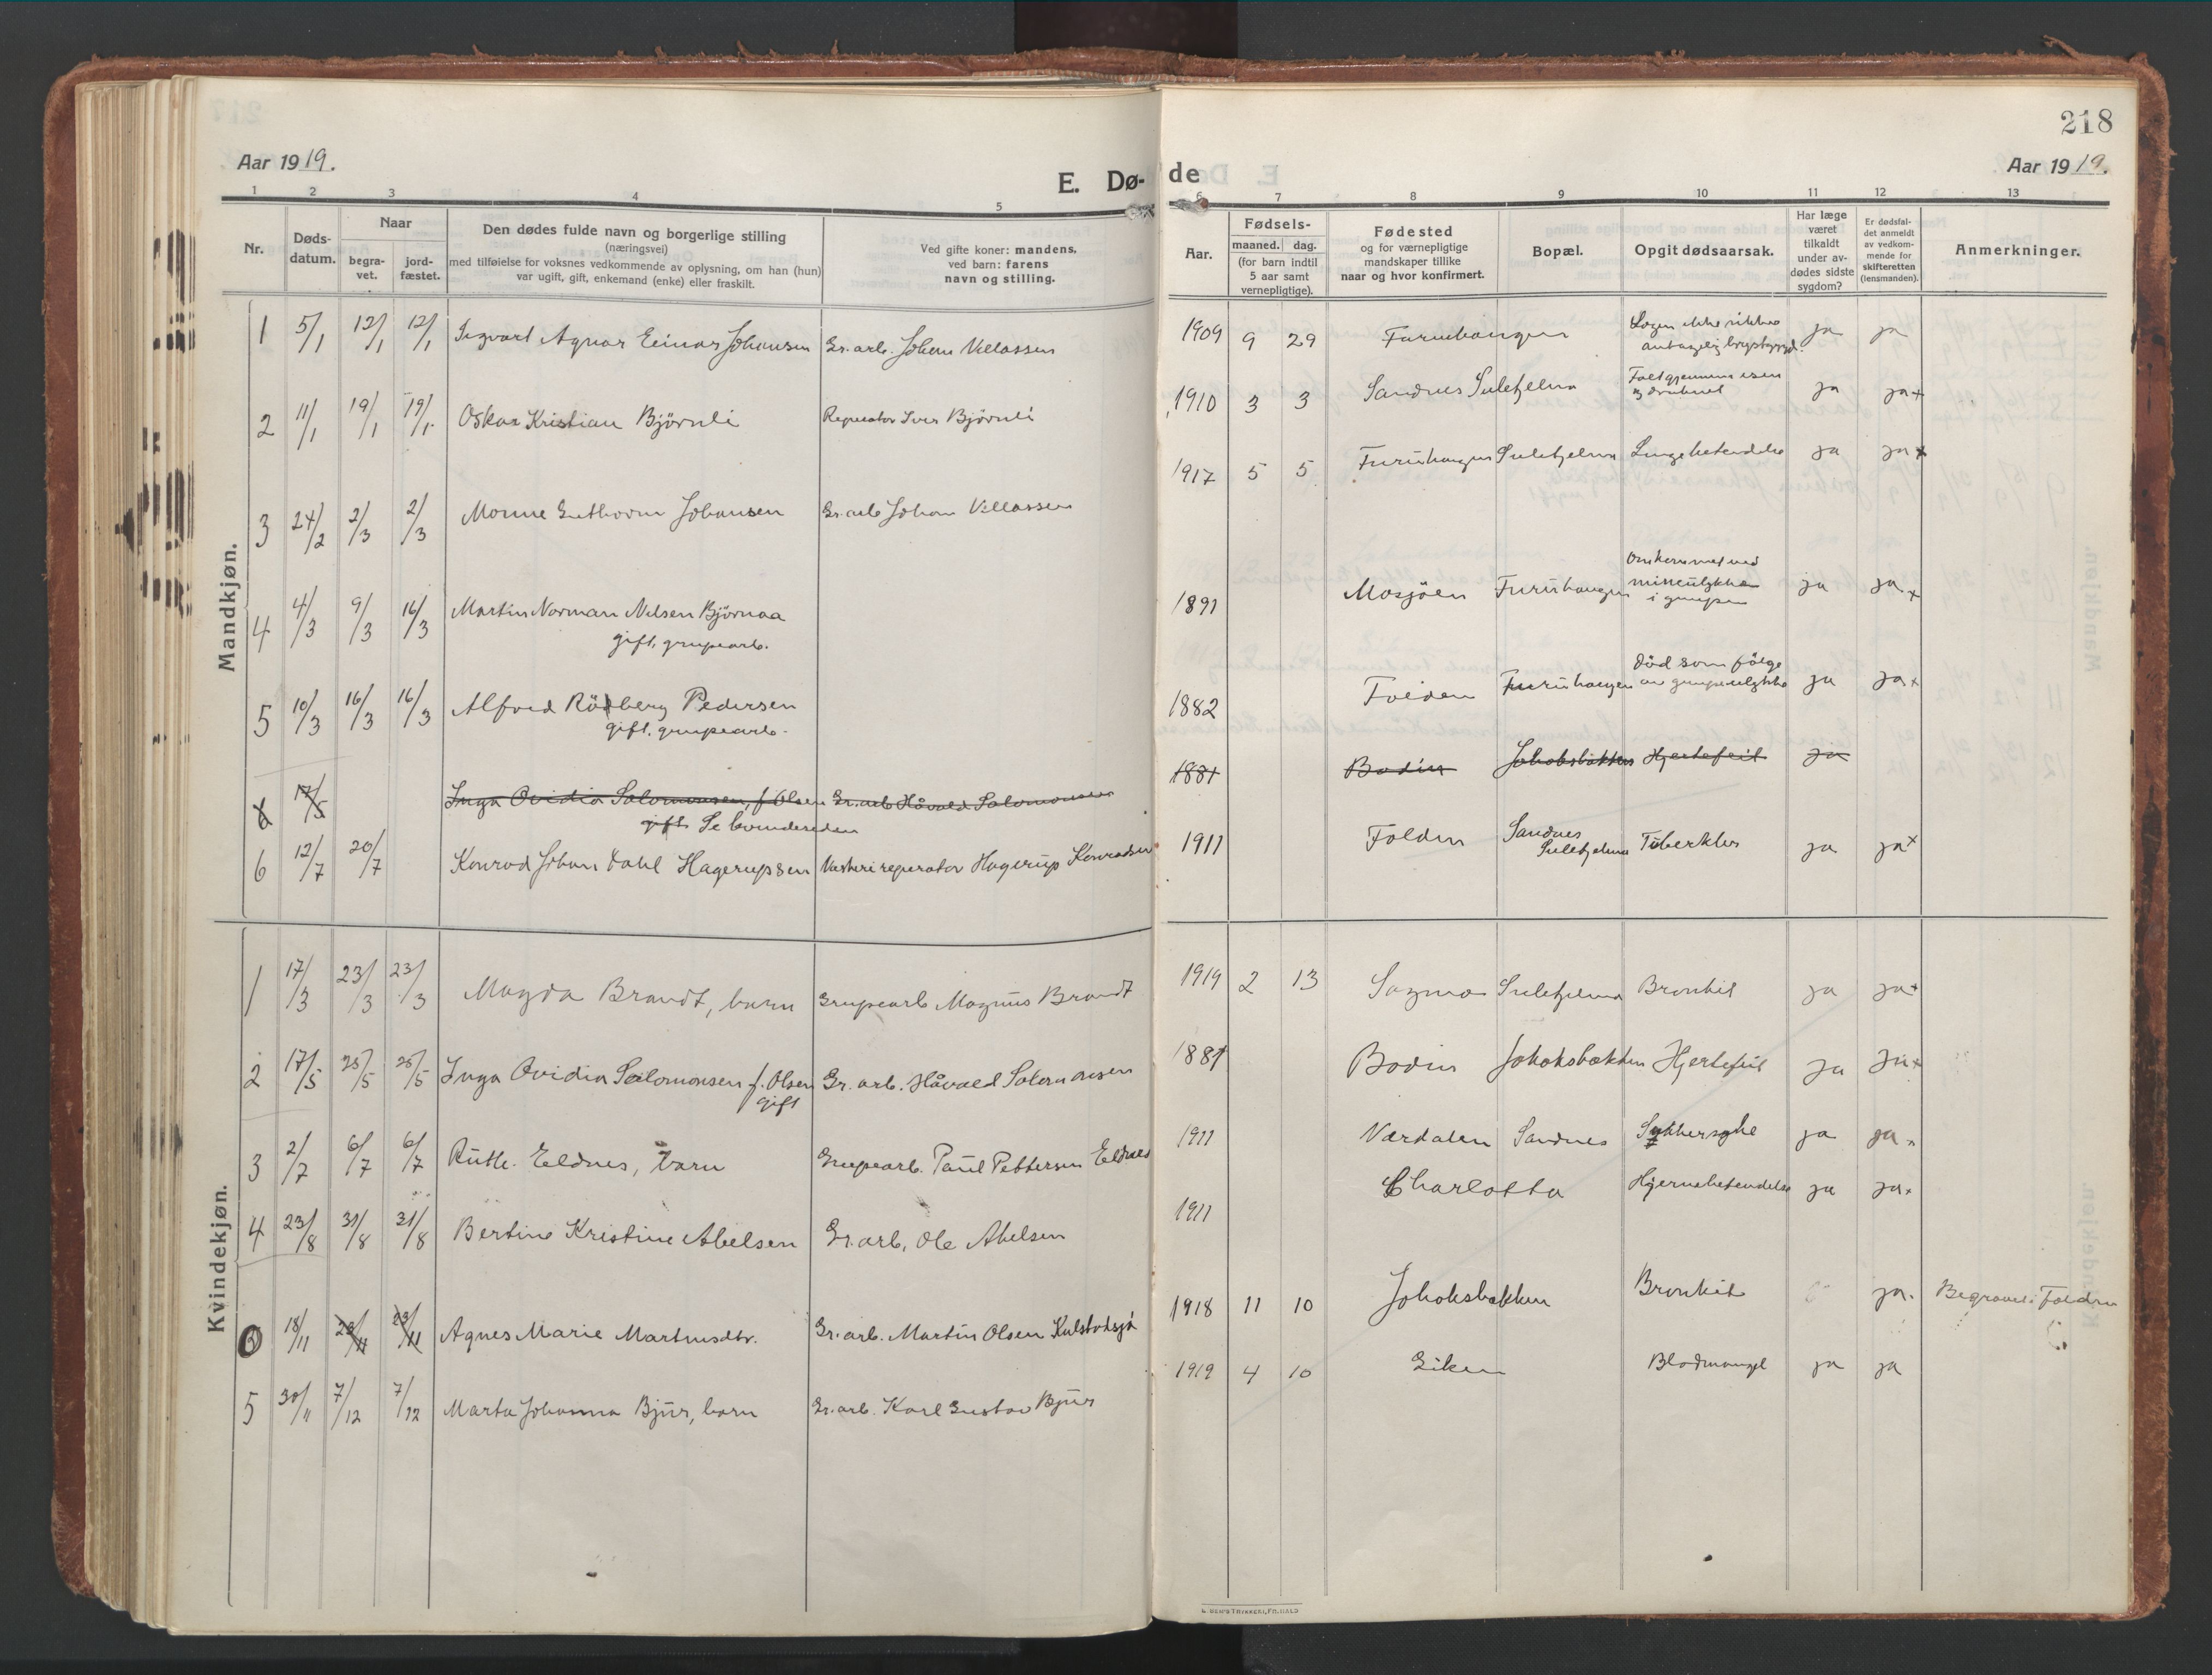 218
Aar 1919.
E. Dø-
de
Aar 1919.
1 2 3 4 5
6 7 8 9 10 11 12 13
Nr.
Døds-
datum.
Naar
begra-
vet.
jord-
fæstet.
Den dødes fulde navn og borgerlige stilling
(næringsvei)
med tilføielse for voksnes vedkommende av oplysning, om han (hun)
var ugift, gift, enkemand (enke) eller fraskilt.
Ved gifte koner: mandens,
ved barn: farens
navn og stilling.
Aar.
Fødsels-
maaned. dag.
(for barn indtil
5 aar samt
vernepligtige).
Fødested
og for værnepligtige
mandskaper tillike
naar og hvor konfirmert.
Bopæl.
Opgit dødsaarsak.
Har læge
været
tilkaldt
under av-
dødes sidste
sygdom?
Er dødsfal-
det anmeldt
av vedkom-
mende for
skifteretten
(lensmanden).
Anmerkninger.
Mandkjøn.
1 5/1 12/1 12/1 Ingvart Agnar Einar Johansen Gr. arb. Johan Villassen 1909 9 29 Furuhaugen ja ja
2 11/1 19/1 19/1 Oskar Kristian Björnli Reperatør Iver Björnli 1910 3 3 Sandnes Sulitjelma Falt gjennem isen
og druknet ja ja +
3 24/2 2/3 2/3 Monne Guthorm Johansen Gr. arb Johan Villassen 1917 5 5 Furuhaugen Sulitjelma Lungebetendelse ja ja +
4 4/3 9/3 16/3 Martin Norman Nilsen Björnaa
gift, grupearb. 1891 Mosjöen Furuhaugen Omkommet ved
mineulykke
i grupen ja ja +
5 10/3 16/3 16/3 Alfred Rödberg Pedersen
gift. grupearb. 1882 Folden Furuhaugen död som fölge
av grupeulykke ja ja +
6 17/5 Inga Ovidia Salomonsen, f. Olsen Gr. arb Håvald Salomonsen 1881 Bodin Jakobsbakken Hjertefeil ja
gift Se kvindesiden
6 12/7 20/7 Konrad Johan Dahl Hagerupsen reperatør Hagerup Konradsen 1911 Folden Sandnes
Sulitjelma Tuberklos ja ja +
Kvindekjøn.
1 17/3 23/3 23/3 Magda Brandt, barn Grupearb Magnus Brandt 1919 2 13 Sagmo Sulitjelma Bronkit ja ja +
2 17/5 25/5 25/5 Inga Ovidia Salomonsen f. Olsen
gift Gr. arb. Håvald Salomonsen 1881 Bodin Jakobsbakken Hjertefeil ja ja +
3 2/7 6/7 6/7 Ruth. Eldnes, barn Grupearb. Paul Pettersen Eldnes 1911 Værdalen Sandnes Sukkersyke ja ja +
4 23/8 31/8 31/8 Bertine Kristine Abelsen Gr. arb, Ole Abelsen 1911 Charlotta Hjernebetendelse ja ja +
0 18/11 23/11 23/11 Agnes Marie Martinsdtr. Gr. arb. Martin Olsen Kulstadsjö 1918 11 10 Jakobsbakken Bronkit ja. Begravet i Folden
5 30/11 7/12 7/12 Marta Johanna Bjur, barn Gr. arb. Karl Gustav Bjur 1919 4 10 Giken Blodmangel ja ja